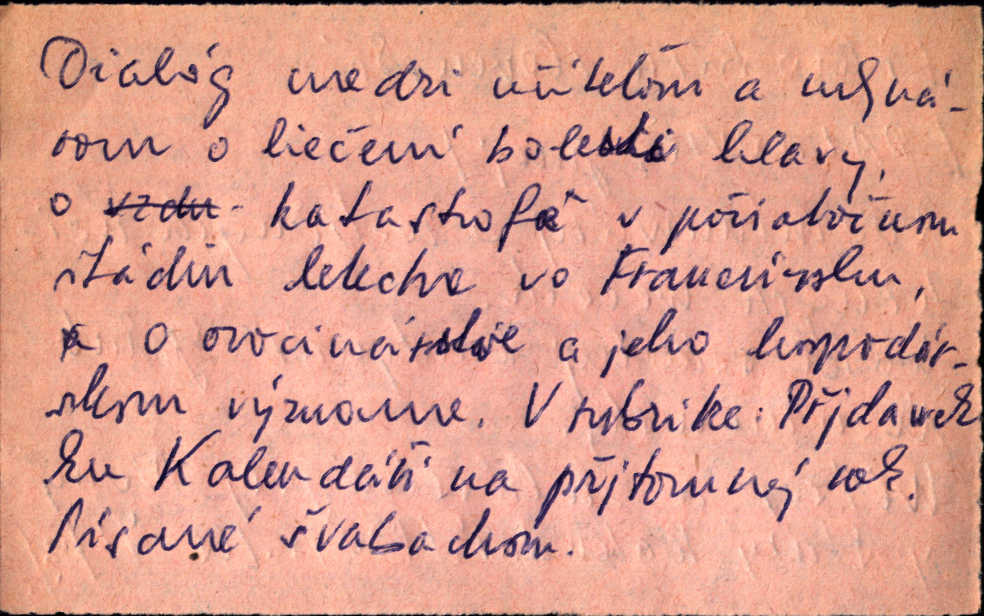 Dialóg medzi učiteľom a mlyná-
rom o liečení bolesti hlavy,
o vzdu- katastrofě v počiatočnom
štádiu letectva vo Francúzsku,
o ovocinárstve a jeho hospodár-
skom význame. V rubrike: Přjdawek
ku Kalendáři na přjtomný rok.
Písané švabachom.